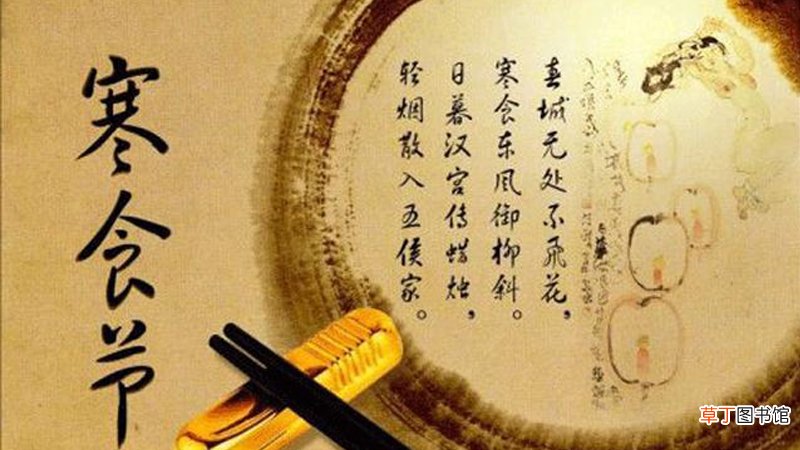 寒食节
春城无处不飛花，
寒食东风御柳斜。
日暮汉宫传蜡烛，
轻烟散入五侯家。
草丁图书馆